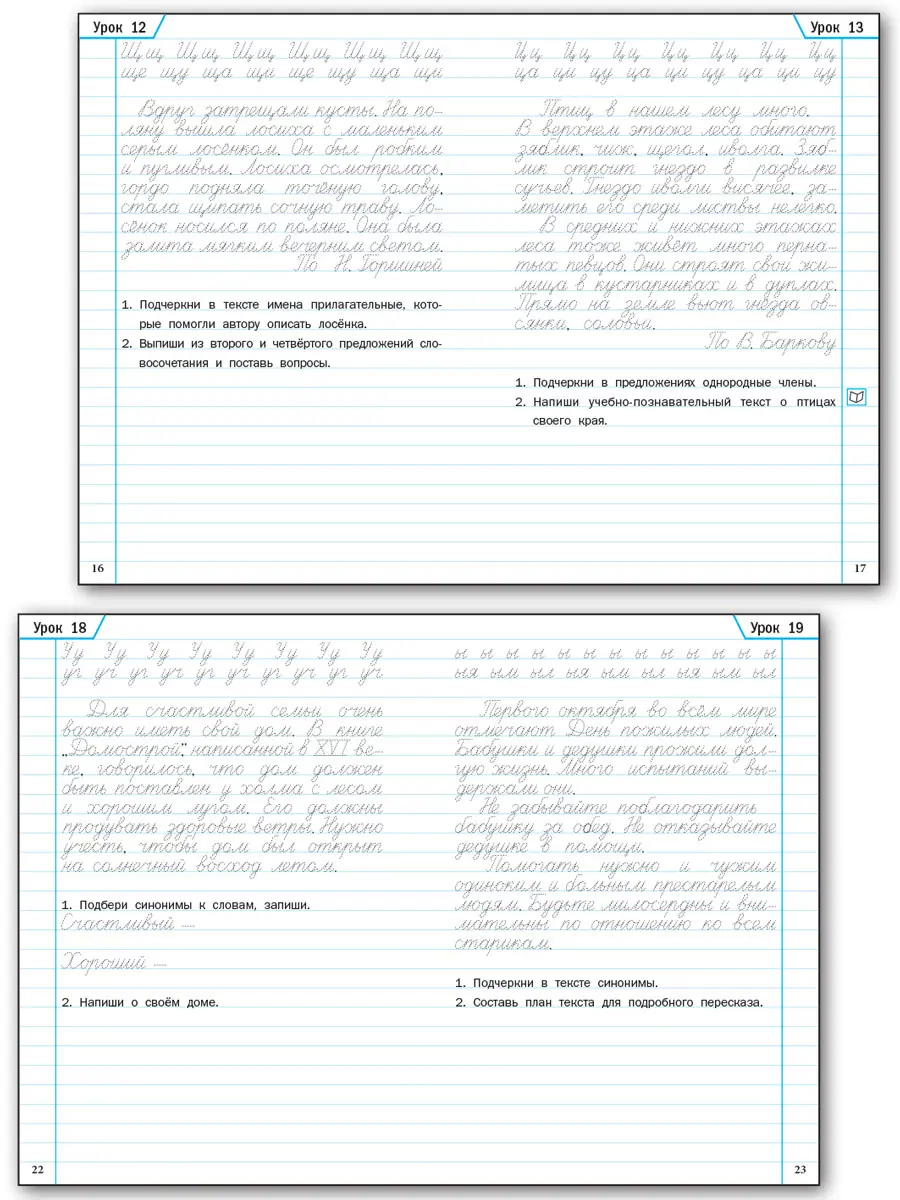 Урок 12
Щщ Щщ Щщ Щщ Щщ Щщ
ще щу ща щи ще щу ща щи
Вдруг затрещали кусты. На по-
ляну вышла лосиха с маленьким
серым лосёнком. Он был робким
и пугливым. Лосиха осмотрелась,
гордо подняла точёную голову,
стала щипать сочную траву. Ло-
сёнок носился по поляне. Она была
залита мягким вечерним светом.
По Н. Горишней
1. Подчеркни в тексте имена прилагательные, кото-
рые помогли автору описать лосёнка.
2. Выпиши из второго и четвёртого предложений сло-
восочетания и поставь вопросы.
16
Урок 13
Цц Цц Цц Цц Цц Цц Цц
ца ци цу ца ци цу ца ци цу
Птиц в нашем лесу много.
В верхнем этаже леса обитают
зяблик, чиж, щегол, иволга. Зяб-
лик строит гнездо в развилке
сучьев. Гнездо иволги висячее, за-
метить его среди листвы нелегко.
В средних и нижних этажах
леса тоже живёт много перна-
тых певцов. Они строят свои жи-
лища в кустарниках и в дуплах.
Прямо на земле вьют гнёзда ов-
сянки, соловьи.
По В. Баркову
1. Подчеркни в предложениях однородные члены.
2. Напиши учебно-познавательный текст о птицах
своего края.
17
Урок 18
Уу Уу Уу Уу Уу Уу Уу Уу
уг уч уг уч уг уч уг уч уг уч
Для счастливой семьи очень
важно иметь свой дом. В книге
„Домострой", написанной в XVI ве-
ке, говорилось, что дом должен
быть поставлен у холма с лесом
и хорошим лугом. Его должны
продувать здоровые ветры. Нужно
учесть, чтобы дом был открыт
на солнечный восход летом.
1. Подбери синонимы к словам, запиши.
Счастливый —
Хороший —
2. Напиши о своём доме.
22
Урок 19
ы ы ы ы ы ы ы ы ы ы ы ы ы
ыя ым ыл ыя ым ыл ыя ым ыл
Первого октября во всём мире
отмечают День пожилых людей.
Бабушки и дедушки прожили дол-
гую жизнь. Много испытаний вы-
держали они.
Не забывайте поблагодарить
бабушку за обед. Не отказывайте
дедушке в помощи.
Помогать нужно и чужим
одиноким и больным престарелым
людям. Будьте милосердны и вни-
мательны по отношению ко всем
старикам.
1. Подчеркни в тексте синонимы.
2. Составь план текста для подробного пересказа.
23